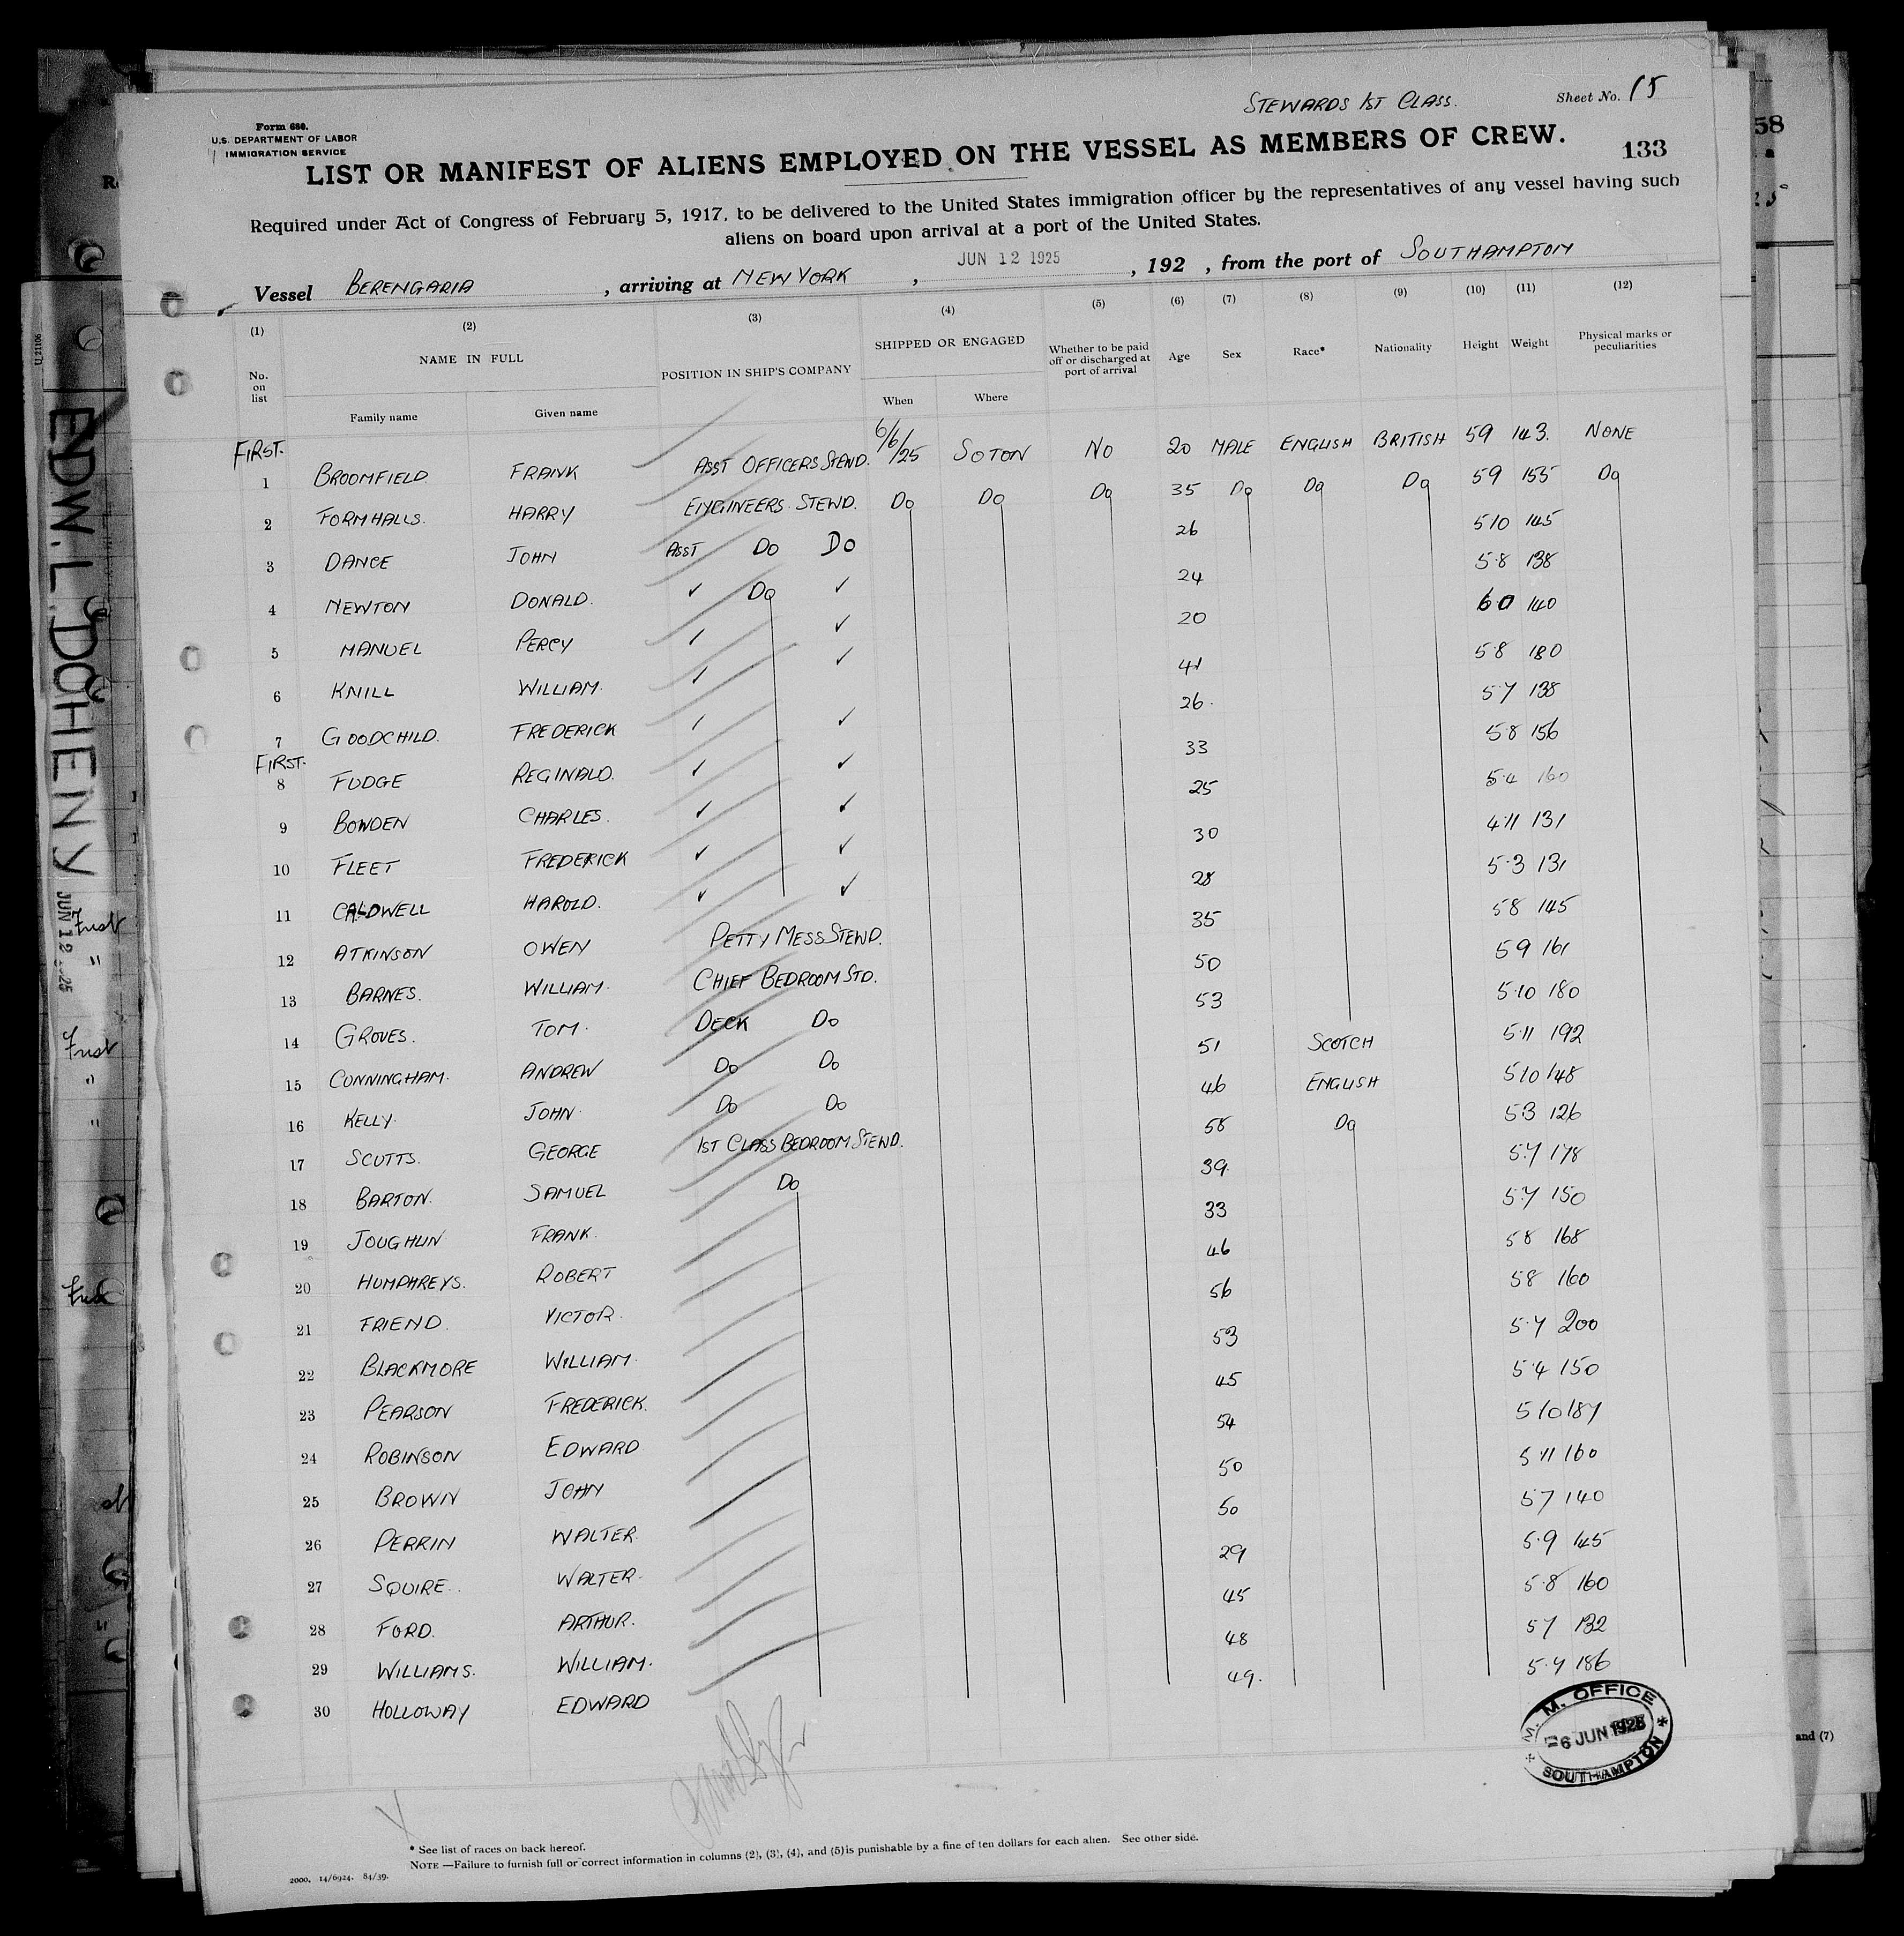 STEWARDS 1ST CLASS. Sheet No. 15
Form 680.
U.S. DEPARTMENT OF LABOR
IMMIGRATION SERVICE
133
LIST OR MANIFEST OF ALIENS EMPLOYED ON THE VESSEL AS MEMBERS OF CREW.
Required under Act of Congress of February 5, 1917, to be delivered to the United States immigration officer by the representatives of any vessel having such
aliens on board upon arrival at a port of the United States.
Vessel BERENGARIA, arriving at NEW YORK, JUN 12 1925, 192 , from the port of SOUTHAMPTON
(1) (2) (3) (4) (5) (6) (7) (8) (9) (10) (11) (12)
No. on list NAME IN FULL POSITION IN SHIP'S COMPANY SHIPPED OR ENGAGED Whether to be paid off or discharged at port of arrival Age Sex Race* Nationality Height Weight Physical marks or peculiarities
Family name Given name When Where
FIRST.
1 BROOMFIELD FRANK ASST OFFICERS STEWD. 6/6/25 SOTON NO 20 MALE ENGLISH BRITISH 59 143. NONE
2 FORMHALLS. HARRY ENGINEERS. STEWD. DO DO DO 35 DO DO DO 59 155 DO
3 DANCE JOHN ASST DO DO 26 510 145
4 NEWTON DONALD. ✓ DO ✓ 24 5.8 138
5 MANUEL PERCY ✓ ✓ 20 6.0 140
6 KNILL WILLIAM. ✓ ✓ 41 5.8 180
7 GOODCHILD. FREDERICK ✓ ✓ 26. 5.7 138
FIRST.
8 FUDGE REGINALD. ✓ ✓ 33 58 156
9 BOWDEN CHARLES. ✓ ✓ 25 5.4 160
10 FLEET FREDERICK ✓ ✓ 30 4.11 131
11 CALDWELL HAROLD. ✓ ✓ 28 5.3 131
12 ATKINSON OWEN PETTY MESS STEWD. 35 58 145
13 BARNES. WILLIAM. CHIEF BEDROOM STD. 50 59 161
14 GROVES. TOM. DECK DO 53 5.10 180
15 CUNNINGHAM. ANDREW DO DO 51 SCOTCH 5.11 192
16 KELLY. JOHN. DO DO 46 ENGLISH 510 148
17 SCUTTS. GEORGE 1ST CLASS BEDROOM STEWD. 58 DO 53 126
18 BARTON. SAMUEL DO 39. 5.7 178
19 JOUGHLIN FRANK. 33 5.7 150
20 HUMPHREYS. ROBERT 46 58 168
21 FRIEND VICTOR. 56 58 160
22 BLACKMORE WILLIAM. 53 5.7 200
23 PEARSON FREDERICK. 45 5.4 150
24 ROBINSON EDWARD 54 510 187
25 BROWN JOHN 50 5.11 160
26 PERRIN WALTER. 50 57 140
27 SQUIRE. WALTER. 29 5.9 145
28 FORD. ARTHUR. 45 5.8 160
29 WILLIAMS. WILLIAM. 48 57 132
30 HOLLOWAY EDWARD 49. 5.7 186
M. M. OFFICE
6 JUN 1925
SOUTHAMPTON
* See list of races on back hereof.
NOTE.—Failure to furnish full or correct information in columns (2), (3), (4), and (5) is punishable by a fine of ten dollars for each alien. See other side.
2000. 14/6924. 84/39.
EDW. L. DOHENY
JUN 12
U 21106
58
and (7)